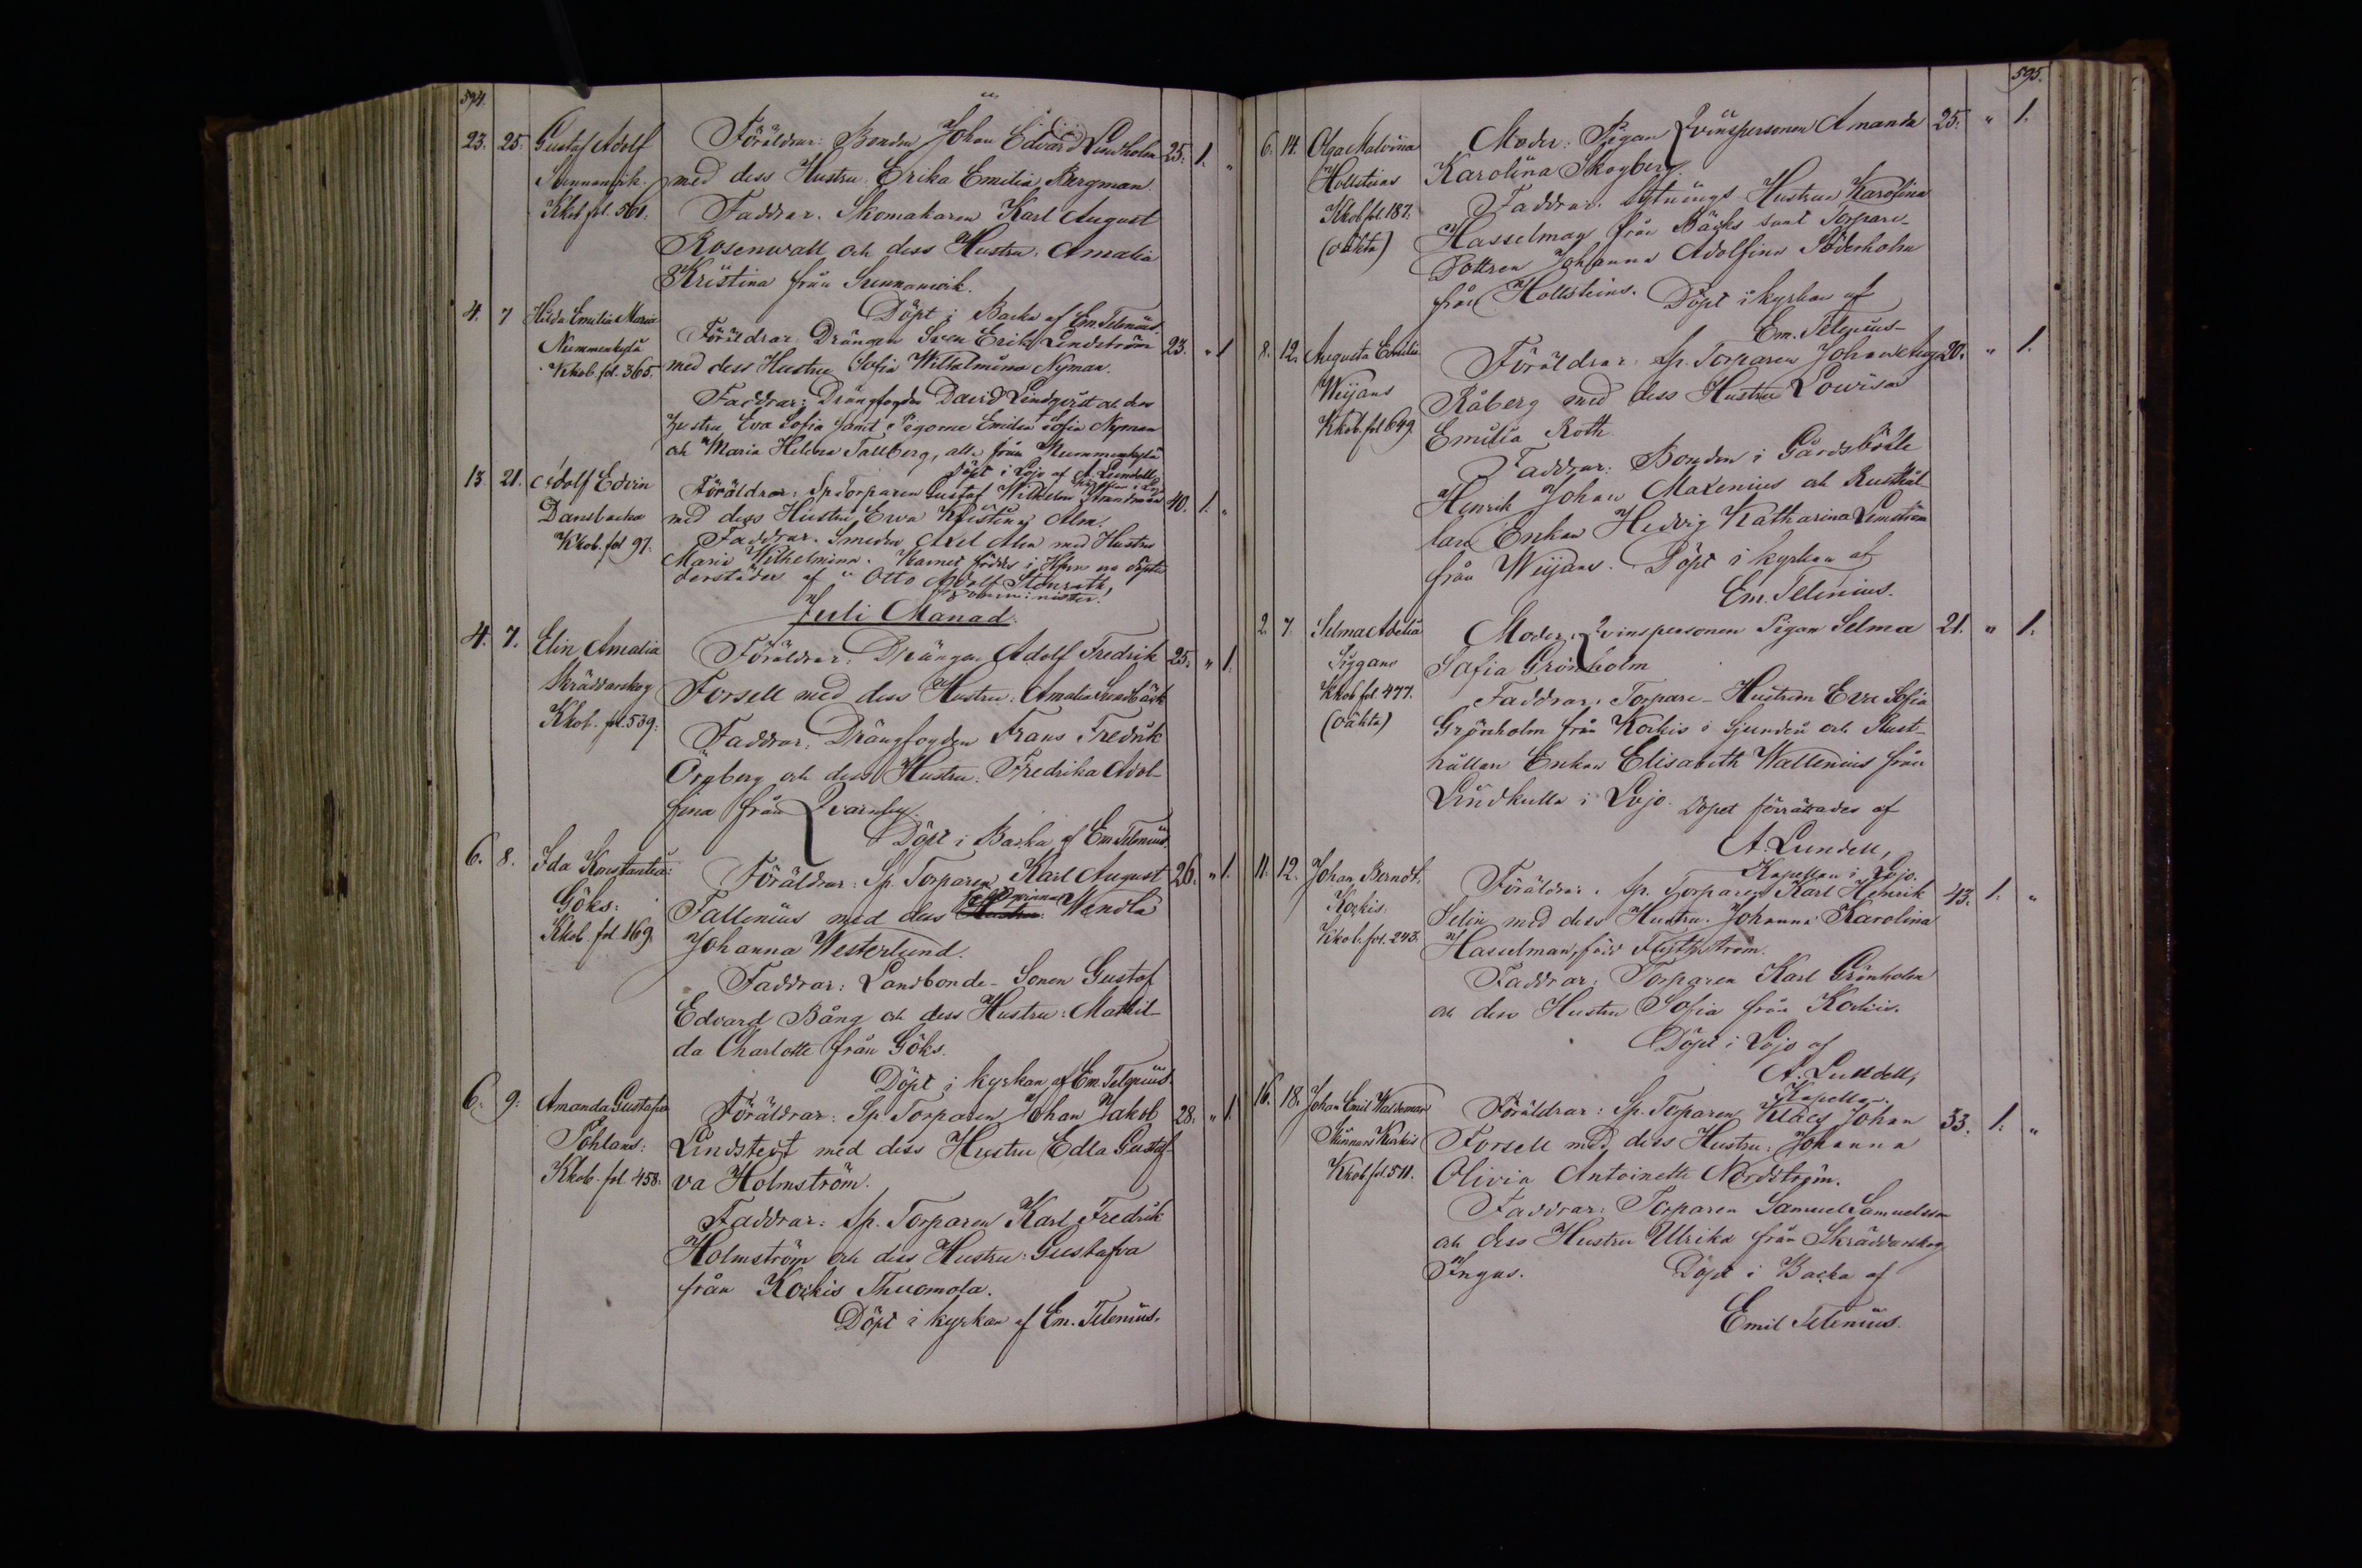 594.
23. 25. Gustaf Adolf Föräldrar: Bonden Johan Edvard Lindholm 25. 1. "
Sunnanvik. med dess Hustru Erika Emilia Bergman.
Kkob. fol. 501. Faddrar. Skomakaren Karl August
Rosenwall och dess Hustru. Amalia
Kristina från Sunnanvik.
Döpt i Backa af Em. Telenius.
4. 7 Hilda Emilia Maria Föräldrar Drängen Sven Erik Lindström 23. " 1
Nummenkylä med dess Hustru Sofia Wilhelmina Nyman.
Kkob. fol. 365. Faddrar: Drängfogden David Lindqvist och dess
Hustru Eva Sofia samt Pigorne Emilia Sofia Nyman
och Maria Helena Tallberg, alla från Nummenkylä
Döpt i Lojo af A. Lundell,
13. 21. Adolf Edvin Föräldrar: Sp Torparen Gustaf Wilhelm Strandman 40. 1. "
Dansbacka med dess Hustru, Ewa Kristina Alm.
Kkob. fol 97. Faddrar. Smeden Axel Alm med Hustru
Maria Wilhelmina. Barnet föddes i Hfors och döptes
derstädes af Otto Adolf Stenroth,
Komminister.
Juli Månad.
4. 7. Elin Amalia Föräldrar: Drängen Adolf Fredrik 25. " 1.
Skräddarskog Forsell med dess Hustru: Amalia Lundbäck
Kkob. fol. 539. Faddrar: Drängfogden Frans Fredrik
Öngberg och dess Hustru: Fredrika Adol-
fina från Qvarnby.
Döpt i Backa af Em Telenius.
6. 8. Ida Konstantia: Föräldrar: Sp. Torparen Karl August 26. " 1.
Göks: Tallenius med dess Hustru: Wendla
Kkob. fol. 169. Johanna Westerlund.
Faddrar: Landbonde-Sonen Gustaf
Edvard Bång och dess Hustru: Mathil-
da Charlotte från Göks.
Döpt i kyrkan af Em Telenius.
6. 9. Amanda Gustafva Föräldrar: Sp. Torparen Johan Jakob 28. " 1.
Pohlans: Lindstedt med dess Hustru Edla Gustaf-
Kkob. fol. 458. va Holmström.
Faddrar: Sp. Torparen Karl Fredrik
Holmström och dess Hustru: Gustafva
från Korkis Thuomola.
Döpt i kyrkan af Em. Telenius.
595.
6. 14. Olga Malvina Moder: Pigan Qvinspersonen Amanda 25. " 1.
Hollsteins Karolina Skogberg.
Kkob fol. 187. Faddrar. Sytnings Hustrun Karolina
(oäkta) Hasselman från Bäcks samt Torpare-
Dottren Johanna Adolfina Söderholm
från Hollsteins. Döpt i kyrkan af
Em. Telenius-
8. 12. Augusta Emilia Föräldrar: Sp. Torparen Johan Aug. 20. " 1.
Weijans Råberg med dess Hustru Lowisa
Kkob. fol 649. Emilia Roth.
Faddrar: Bonden i Gårdsböle
Henrik Johan Malenius och Rusthål-
lare Enkan Hedvig Katharina Lemström
från Weijans. Döpt i kyrkan af
Em. Telenius.
2. 7. Selma Adelia Moder: Qvinspersonen Pigan Selma 21. " 1.
Siggans Sofia Grönholm
Kkob fol 477. Faddrar: Torpare-Hustrun Eva Sofia
(oäkta) Grönholm från Korkis i Sjundeå och Rust-
hållare Enkan Elisabeth Wallenius från
Lindkulla i Lojo. Dopet förrättades af
A. Lundell,
Kapellan i Lojo.
11. 12. Johan Berndt. Föräldrar. Sp. Torparen Karl Henrik 43. 1. "
Korkis Selin med dess Hustru. Johanna Karolina
Kkob. fol. 243. Hasselman, född Flythström.
Faddrar: Torparen Karl Grönholm
och dess Hustru Sofia från Korkis.
Döpt i Lojo af
A. Lundell,
Kapellan.
16. 18. Johan Emil Waldemar Föräldrar: Sp. Torparen Klaes Johan 33. 1. "
Skinnars Korkis Forsell med dess Hustru: Johanna
Kkob fol. 511. Olivia Antoinette Nordström.
Faddrar: Torparen Samuel Samuelsson
och dess Hustru Ulrika från Skräddarskog
Ingas. Döpt i Backa af
Emil Telenius.